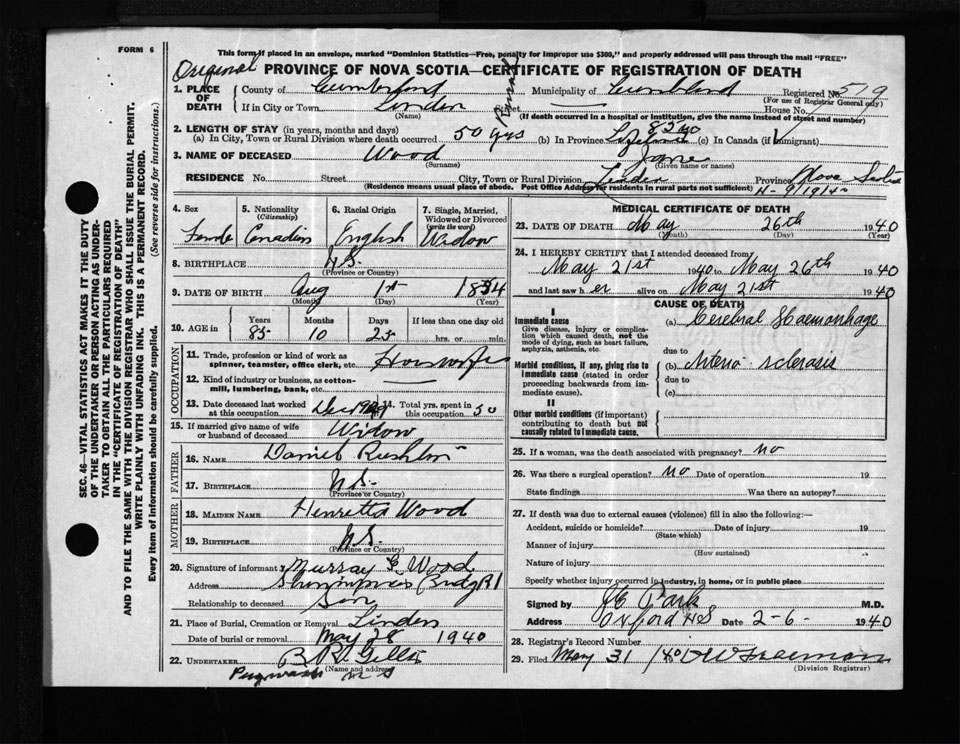 FORM 6
This form if placed in an envelope, marked "Dominion Statistics—Free, penalty for improper use $300," and properly addressed will pass through the mail "FREE"
Original PROVINCE OF NOVA SCOTIA—CERTIFICATE OF REGISTRATION OF DEATH
1. PLACE OF DEATH County of Cumberland Municipality of Cumberland Registered No. 519
(For use of Registrar General only)
If in City or Town Linden (Name) Street House No.
(If death occurred in a hospital or institution, give the name instead of street and number)
2. LENGTH OF STAY (in years, months and days)
(a) In City, Town or Rural Division where death occurred 50 yrs (b) In Province Lifetime 85 yo (c) In Canada (if immigrant)
3. NAME OF DECEASED Wood (Surname) Jane (Given name or names)
RESIDENCE No. Street City, Town or Rural Division Linden Province Nova Scotia
(Residence means usual place of abode. Post Office Address for residents in rural parts not sufficient) N-9/19/40
4. Sex Female
5. Nationality (Citizenship) Canadian
6. Racial Origin English
7. Single, Married, Widowed or Divorced (write the word) Widow
8. BIRTHPLACE N.S. (Province or Country)
9. DATE OF BIRTH Aug (Month) 1st (Day) 1854 (Year)
10. AGE in Years 85 Months 10 Days 25 If less than one day old hrs. or min.
OCCUPATION
11. Trade, profession or kind of work as spinner, teamster, office clerk, etc. Housewife
12. Kind of industry or business, as cotton-mill, lumbering, bank, etc.
13. Date deceased last worked at this occupation Dec 1939 14. Total yrs. spent in this occupation 50
15. If married give name of wife or husband of deceased Widow
FATHER
16. NAME Daniel Rushton
17. BIRTHPLACE N.S. (Province or Country)
MOTHER
18. MAIDEN NAME Henretta Wood
19. BIRTHPLACE N.S. (Province or Country)
20. Signature of informant Murray G. Wood
Address Shinimicas Bridg R1
Relationship to deceased Son
21. Place of Burial, Cremation or Removal Linden
Date of burial or removal May 28 1940
22. UNDERTAKER (Name and address)
Pugwash N S
MEDICAL CERTIFICATE OF DEATH
23. DATE OF DEATH May (Month) 26th (Day) 1940 (Year)
24. I HEREBY CERTIFY that I attended deceased from
May 21st 1940 to May 26th 1940
and last saw her alive on May 21st 1940
CAUSE OF DEATH
I
Immediate cause (a) Cerebral Haemorrhage
Give disease, injury or complication which caused death, not the mode of dying, such as heart failure, asphyxia, asthenia, etc.
due to
Morbid conditions, if any, giving rise to immediate cause (stated in order proceeding backwards from immediate cause). (b) Arterio-sclerosis
due to
(c)
II
Other morbid conditions (if important) contributing to death but not causally related to immediate cause.
25. If a woman, was the death associated with pregnancy? no
26. Was there a surgical operation? no Date of operation 19
State findings Was there an autopsy?
27. If death was due to external causes (violence) fill in also the following:—
Accident, suicide or homicide? (State which) Date of injury 19
Manner of injury (How sustained)
Nature of injury
Specify whether injury occurred in industry, in home, or in public place
Signed by Park M.D.
Address Oxford NS Date 2-6- 1940
28. Registrar's Record Number
29. Filed May 31 1940 Freeman (Division Registrar)
SEC. 46—VITAL STATISTICS ACT MAKES IT THE DUTY
OF THE UNDERTAKER OR PERSON ACTING AS UNDERTAKER TO OBTAIN ALL THE PARTICULARS REQUIRED
IN THE "CERTIFICATE OF REGISTRATION OF DEATH"
AND TO FILE THE SAME WITH THE DIVISION REGISTRAR WHO SHALL ISSUE THE BURIAL PERMIT.
WRITE PLAINLY WITH UNFADING INK. THIS IS A PERMANENT RECORD.
Every item of information should be carefully supplied. (See reverse side for instructions.)